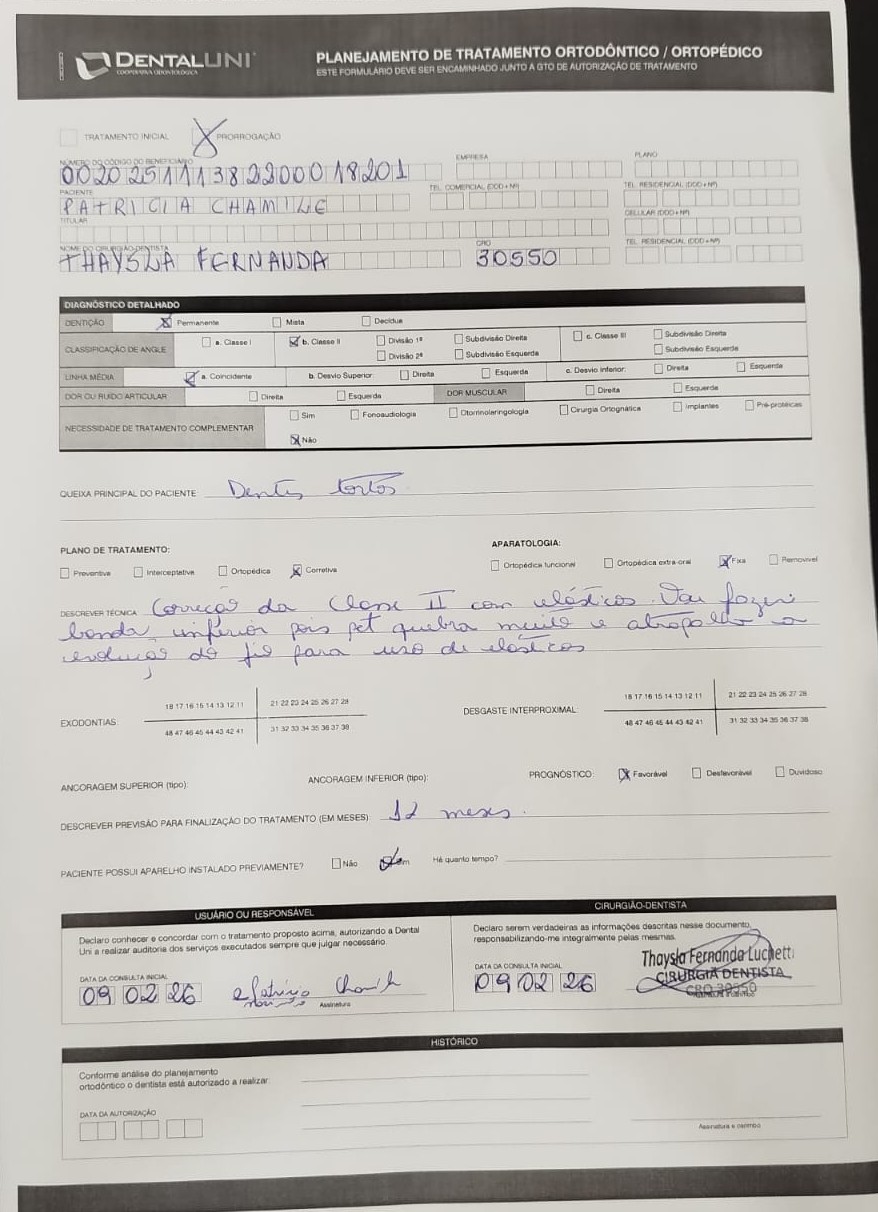 DENTALUNI
COOPERATIVA ODONTOLÓGICA
PLANEJAMENTO DE TRATAMENTO ORTODÔNTICO / ORTOPÉDICO
ESTE FORMULÁRIO DEVE SER ENCAMINHADO JUNTO A GTO DE AUTORIZAÇÃO DE TRATAMENTO
TRATAMENTO INICIAL X PRORROGAÇÃO
NÚMERO DO CÓDIGO DO BENEFICIÁRIO EMPRESA PLANO
00202511138220001 8201
PACIENTE TEL. COMERCIAL (DDD+Nº) TEL. RESIDENCIAL (DDD+Nº)
PATRICIA CHAMILE
TITULAR CELULAR (DDD+Nº)
NOME DO CIRURGIÃO-DENTISTA CRO TEL. RESIDENCIAL (DDD+Nº)
THAYSLA FERNANDA 30550
DIAGNÓSTICO DETALHADO
DENTIÇÃO X Permanente Mista Decídua
CLASSIFICAÇÃO DE ANGLE a. Classe I X b. Classe II Divisão 1ª Subdivisão Direita c. Classe III Subdivisão Direita
Divisão 2ª Subdivisão Esquerda Subdivisão Esquerda
LINHA MÉDIA X a. Coincidente b. Desvio Superior: Direita Esquerda c. Desvio Inferior: Direita Esquerda
DOR OU RUÍDO ARTICULAR Direita Esquerda DOR MUSCULAR Direita Esquerda
NECESSIDADE DE TRATAMENTO COMPLEMENTAR Sim Fonoaudiologia Otorrinolaringologia Cirurgia Ortognática Implantes Pré-protéticas
X Não
QUEIXA PRINCIPAL DO PACIENTE Dentes tortos
PLANO DE TRATAMENTO: APARATOLOGIA:
Preventiva Interceptativa Ortopédica X Corretiva Ortopédica funcional Ortopédica extra-oral X Fixa Removível
DESCREVER TÉCNICA Correção da Classe II com elásticos. Vou fazer
banda inferior pois pet quebra muito e atrapalha a
evolução do fio para uso de elásticos
EXODONTIAS: 18 17 16 15 14 13 12 11 21 22 23 24 25 26 27 28
48 47 46 45 44 43 42 41 31 32 33 34 35 36 37 38
DESGASTE INTERPROXIMAL: 18 17 16 15 14 13 12 11 21 22 23 24 25 26 27 28
48 47 46 45 44 43 42 41 31 32 33 34 35 36 37 38
ANCORAGEM SUPERIOR (tipo): ANCORAGEM INFERIOR (tipo): PROGNÓSTICO: X Favorável Desfavorável Duvidoso
DESCREVER PREVISÃO PARA FINALIZAÇÃO DO TRATAMENTO (EM MESES): 12 meses.
PACIENTE POSSUI APARELHO INSTALADO PREVIAMENTE? Não X Sim Há quanto tempo?
USUÁRIO OU RESPONSÁVEL
Declaro conhecer e concordar com o tratamento proposto acima, autorizando a Dental
Uni a realizar auditoria dos serviços executados sempre que julgar necessário.
DATA DA CONSULTA INICIAL
09 02 26
Assinatura
CIRURGIÃO-DENTISTA
Declaro serem verdadeiras as informações descritas nesse documento,
responsabilizando-me integralmente pelas mesmas.
DATA DA CONSULTA INICIAL
09 02 26
Thaysla Fernanda Luchetti
CIRURGIÃ DENTISTA
CRO 30550
HISTÓRICO
Conforme análise do planejamento
ortodôntico o dentista está autorizado a realizar:
DATA DA AUTORIZAÇÃO
Assinatura e carimbo